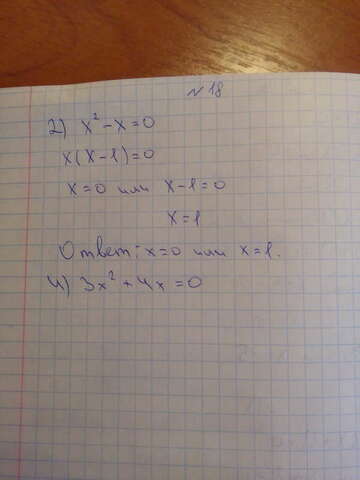 № 18
2) x² - x = 0
x(x-1)=0
x=0 или x-1=0
x=1
Ответ: x=0 или x=1.
4) 3x² + 4x = 0